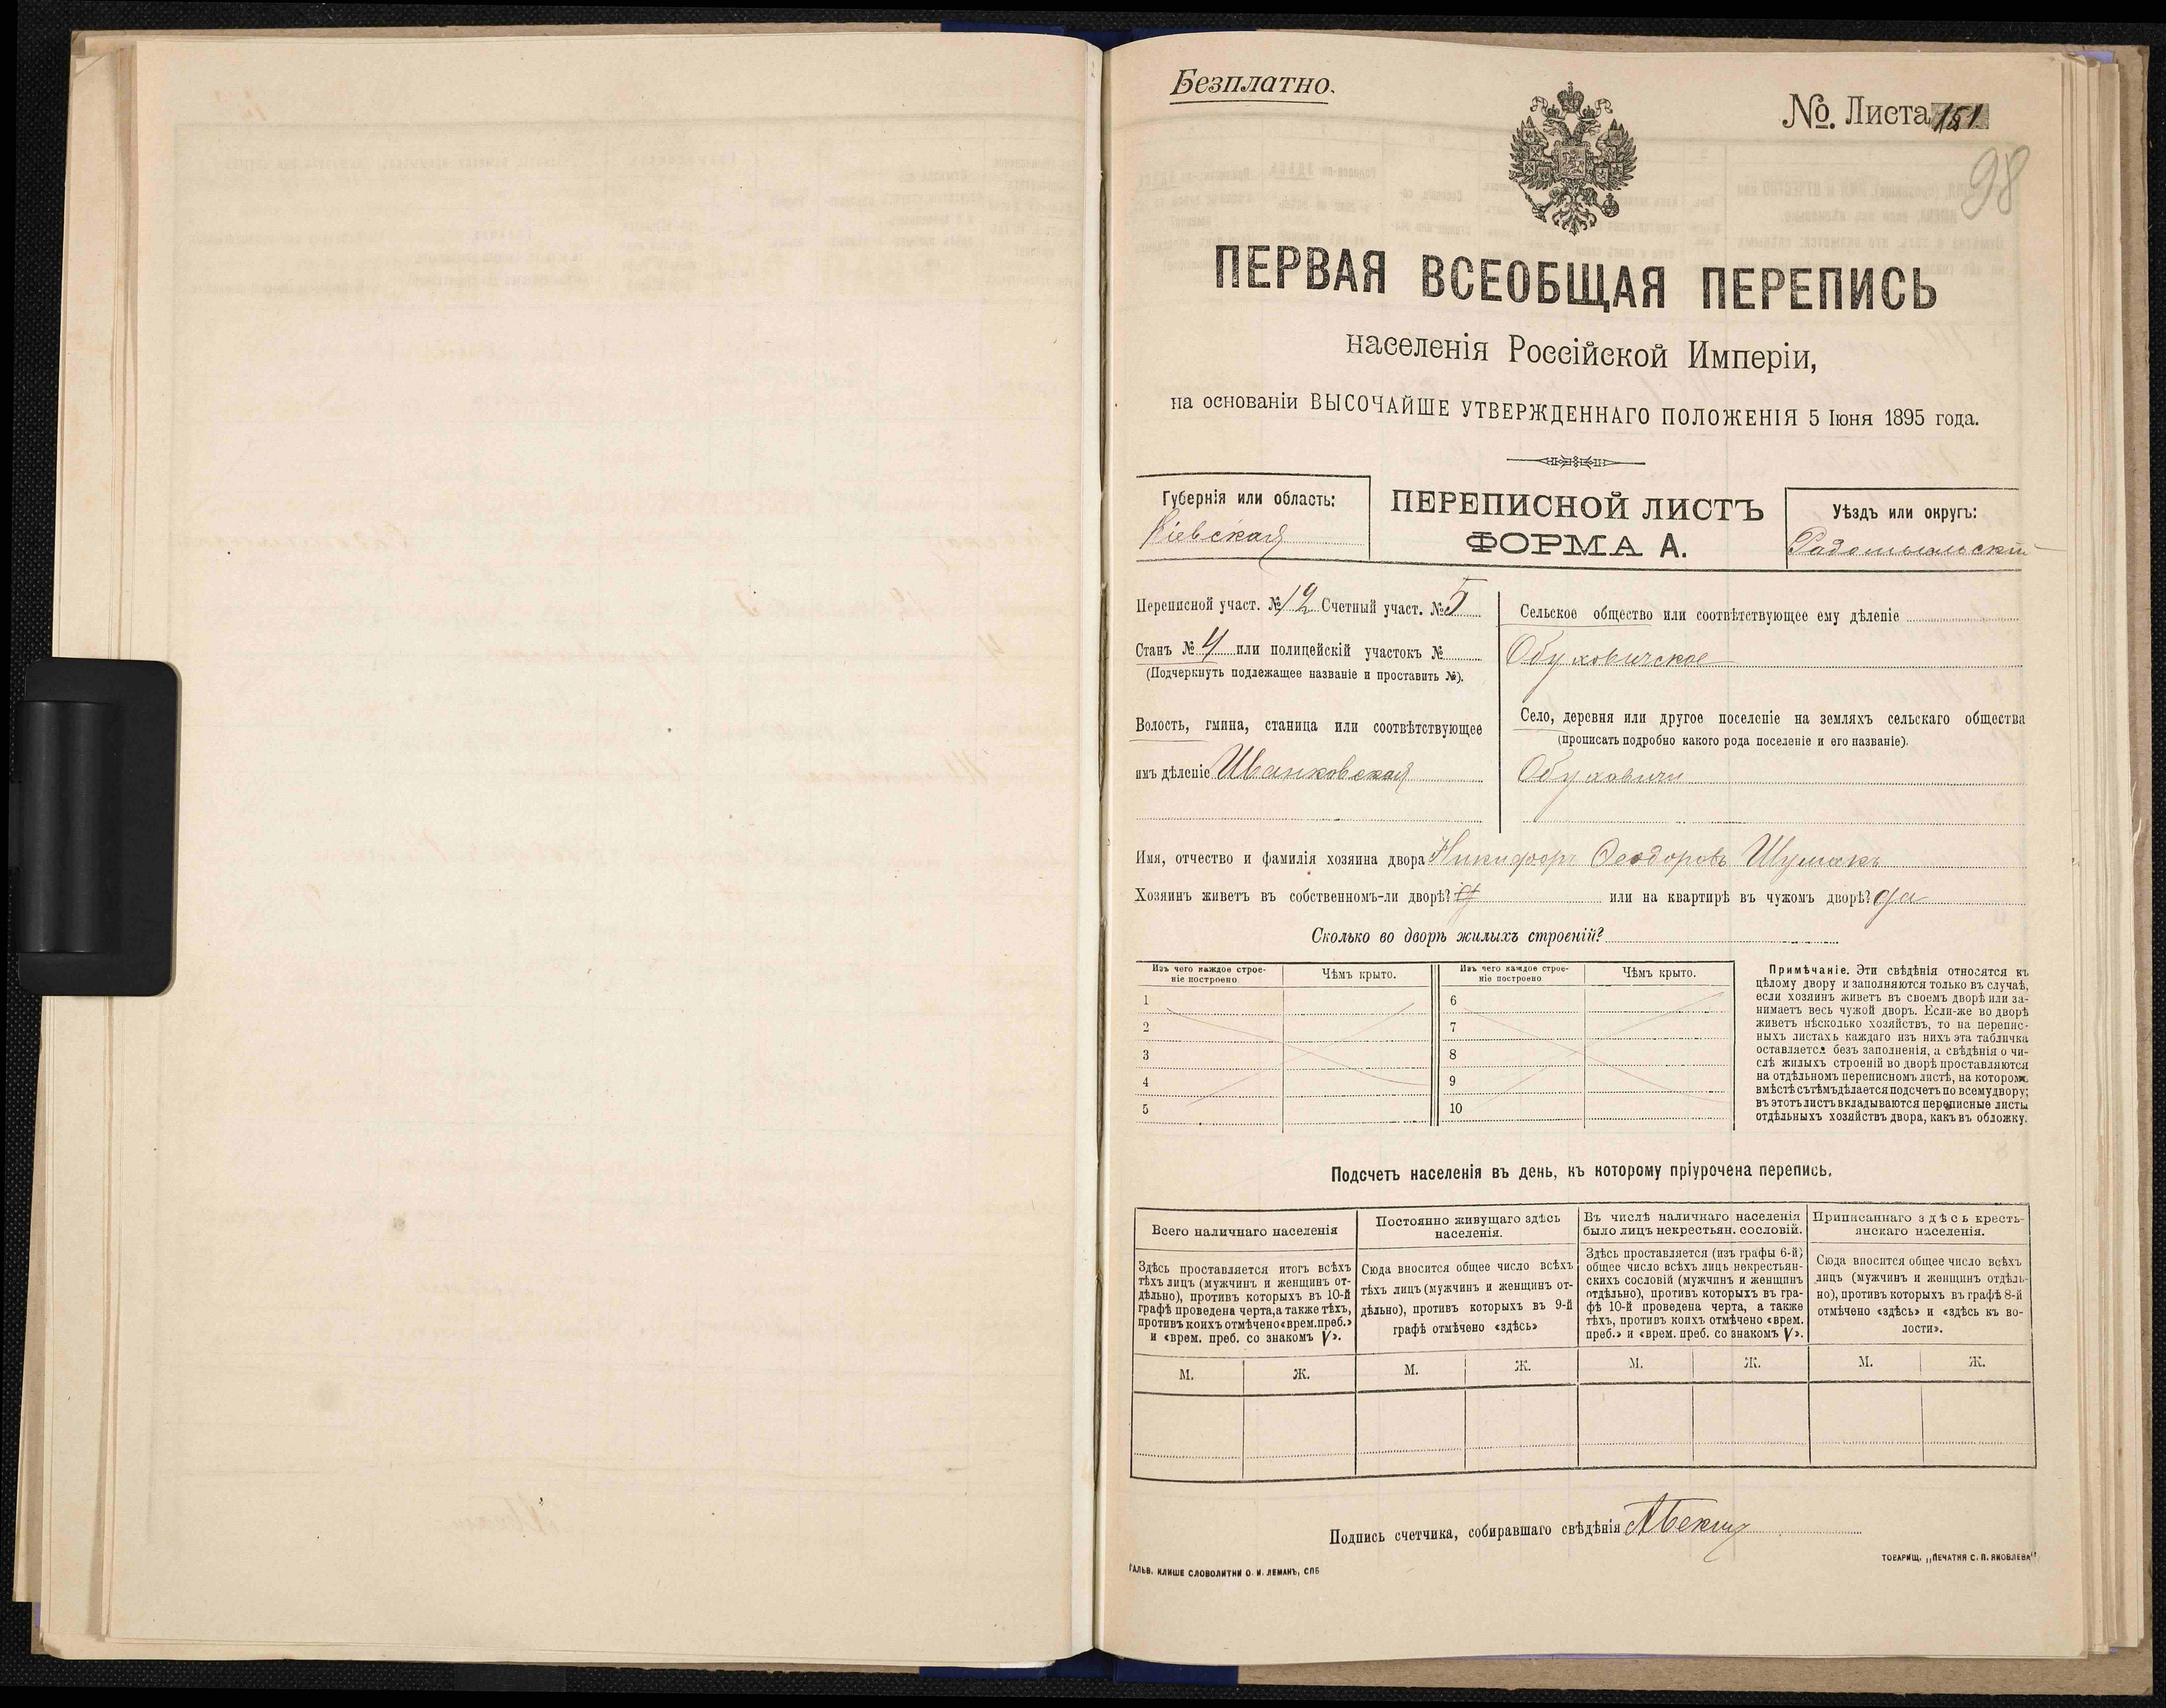 Безплатно.
№. Листа 151
98
ПЕРВАЯ ВСЕОБЩАЯ ПЕРЕПИСЬ
населенія Россійской Имперіи,
на основаніи ВЫСОЧАЙШЕ УТВЕРЖДЕННАГО ПОЛОЖЕНІЯ 5 Іюня 1895 года.
Губернія или область:
Кіевская
ПЕРЕПИСНОЙ ЛИСТЪ
ФОРМА А.
Уѣздъ или округъ:
Радомысльскій
Переписной участ. № 12 Счетный участ. № 5
Станъ № 4 или полицейскій участокъ №
(Подчеркнуть подлежащее названіе и проставить №).
Волость, гмина, станица или соотвѣтствующее
имъ дѣленіе Иванковская
Сельское общество или соотвѣтствующее ему дѣленіе
Обуховичское
Село, деревня или другое поселеніе на земляхъ сельскаго общества
(прописать подробно какого рода поселеніе и его названіе).
Обуховичи
Имя, отчество и фамилія хозяина двора Никифоръ Феодоровъ Шумакъ
Хозяинъ живетъ въ собственномъ-ли дворѣ? или на квартирѣ въ чужомъ дворѣ? да
Сколько во дворѣ жилыхъ строеній?
Изъ чего каждое строе-
ніе построено
Чѣмъ крыто.
Изъ чего каждое строе-
ніе построено
Чѣмъ крыто.
1 6
2 7
3 8
4 9
5 10
Примѣчаніе. Эти свѣдѣнія относятся къ
цѣлому двору и заполняются только въ случаѣ,
если хозяинъ живетъ въ своемъ дворѣ или за-
нимаетъ весь чужой дворъ. Если-же во дворѣ
живетъ нѣсколько хозяйствъ, то на перепис-
ныхъ листахъ каждаго изъ нихъ эта табличка
оставляется безъ заполненія, а свѣдѣнія о чи-
слѣ жилыхъ строеній во дворѣ проставляются
на отдѣльномъ переписномъ листѣ, на которомъ
вмѣстѣ съ тѣмъ дѣлается подсчетъ по всему двору;
въ этотъ листъ вкладываются переписные листы
отдѣльныхъ хозяйствъ двора, какъ въ обложку.
Подсчетъ населенія въ день, къ которому пріурочена перепись.
Всего наличнаго населенія
Здѣсь проставляется итогъ всѣхъ
тѣхъ лицъ (мужчинъ и женщинъ от-
дѣльно), противъ которыхъ въ 10-й
графѣ проведена черта, а также тѣхъ,
противъ коихъ отмѣчено «врем. преб.»
и «врем. преб. со знакомъ V».
Постоянно живущаго здѣсь
населенія.
Сюда вносится общее число всѣхъ
тѣхъ лицъ (мужчинъ и женщинъ от-
дѣльно), противъ которыхъ въ 9-й
графѣ отмѣчено «здѣсь»
Въ числѣ наличнаго населенія
было лицъ некрестьян. сословій.
Здѣсь проставляется (изъ графы 6-й)
общее число всѣхъ лицъ некрестьян-
скихъ сословій (мужчинъ и женщинъ
отдѣльно), противъ которыхъ въ гра-
фѣ 10-й проведена черта, а также
тѣхъ, противъ коихъ отмѣчено «врем.
преб.» и «врем. преб. со знакомъ V».
Приписаннаго здѣсь кресть-
янскаго населенія.
Сюда вносится общее число всѣхъ
лицъ (мужчинъ и женщинъ отдѣль-
но), противъ которыхъ въ графѣ 8-й
отмѣчено «здѣсь» и «здѣсь къ во-
лости».
М. Ж. М. Ж. М. Ж. М. Ж.
Подпись счетчика, собиравшаго свѣдѣнія
ГАЛЬВ. КЛИШЕ СЛОВОЛИТНИ О. И. ЛЕМАНЪ, СПБ
ТОВАРИЩ. „ПЕЧАТНЯ С. П. ЯКОВЛЕВА"